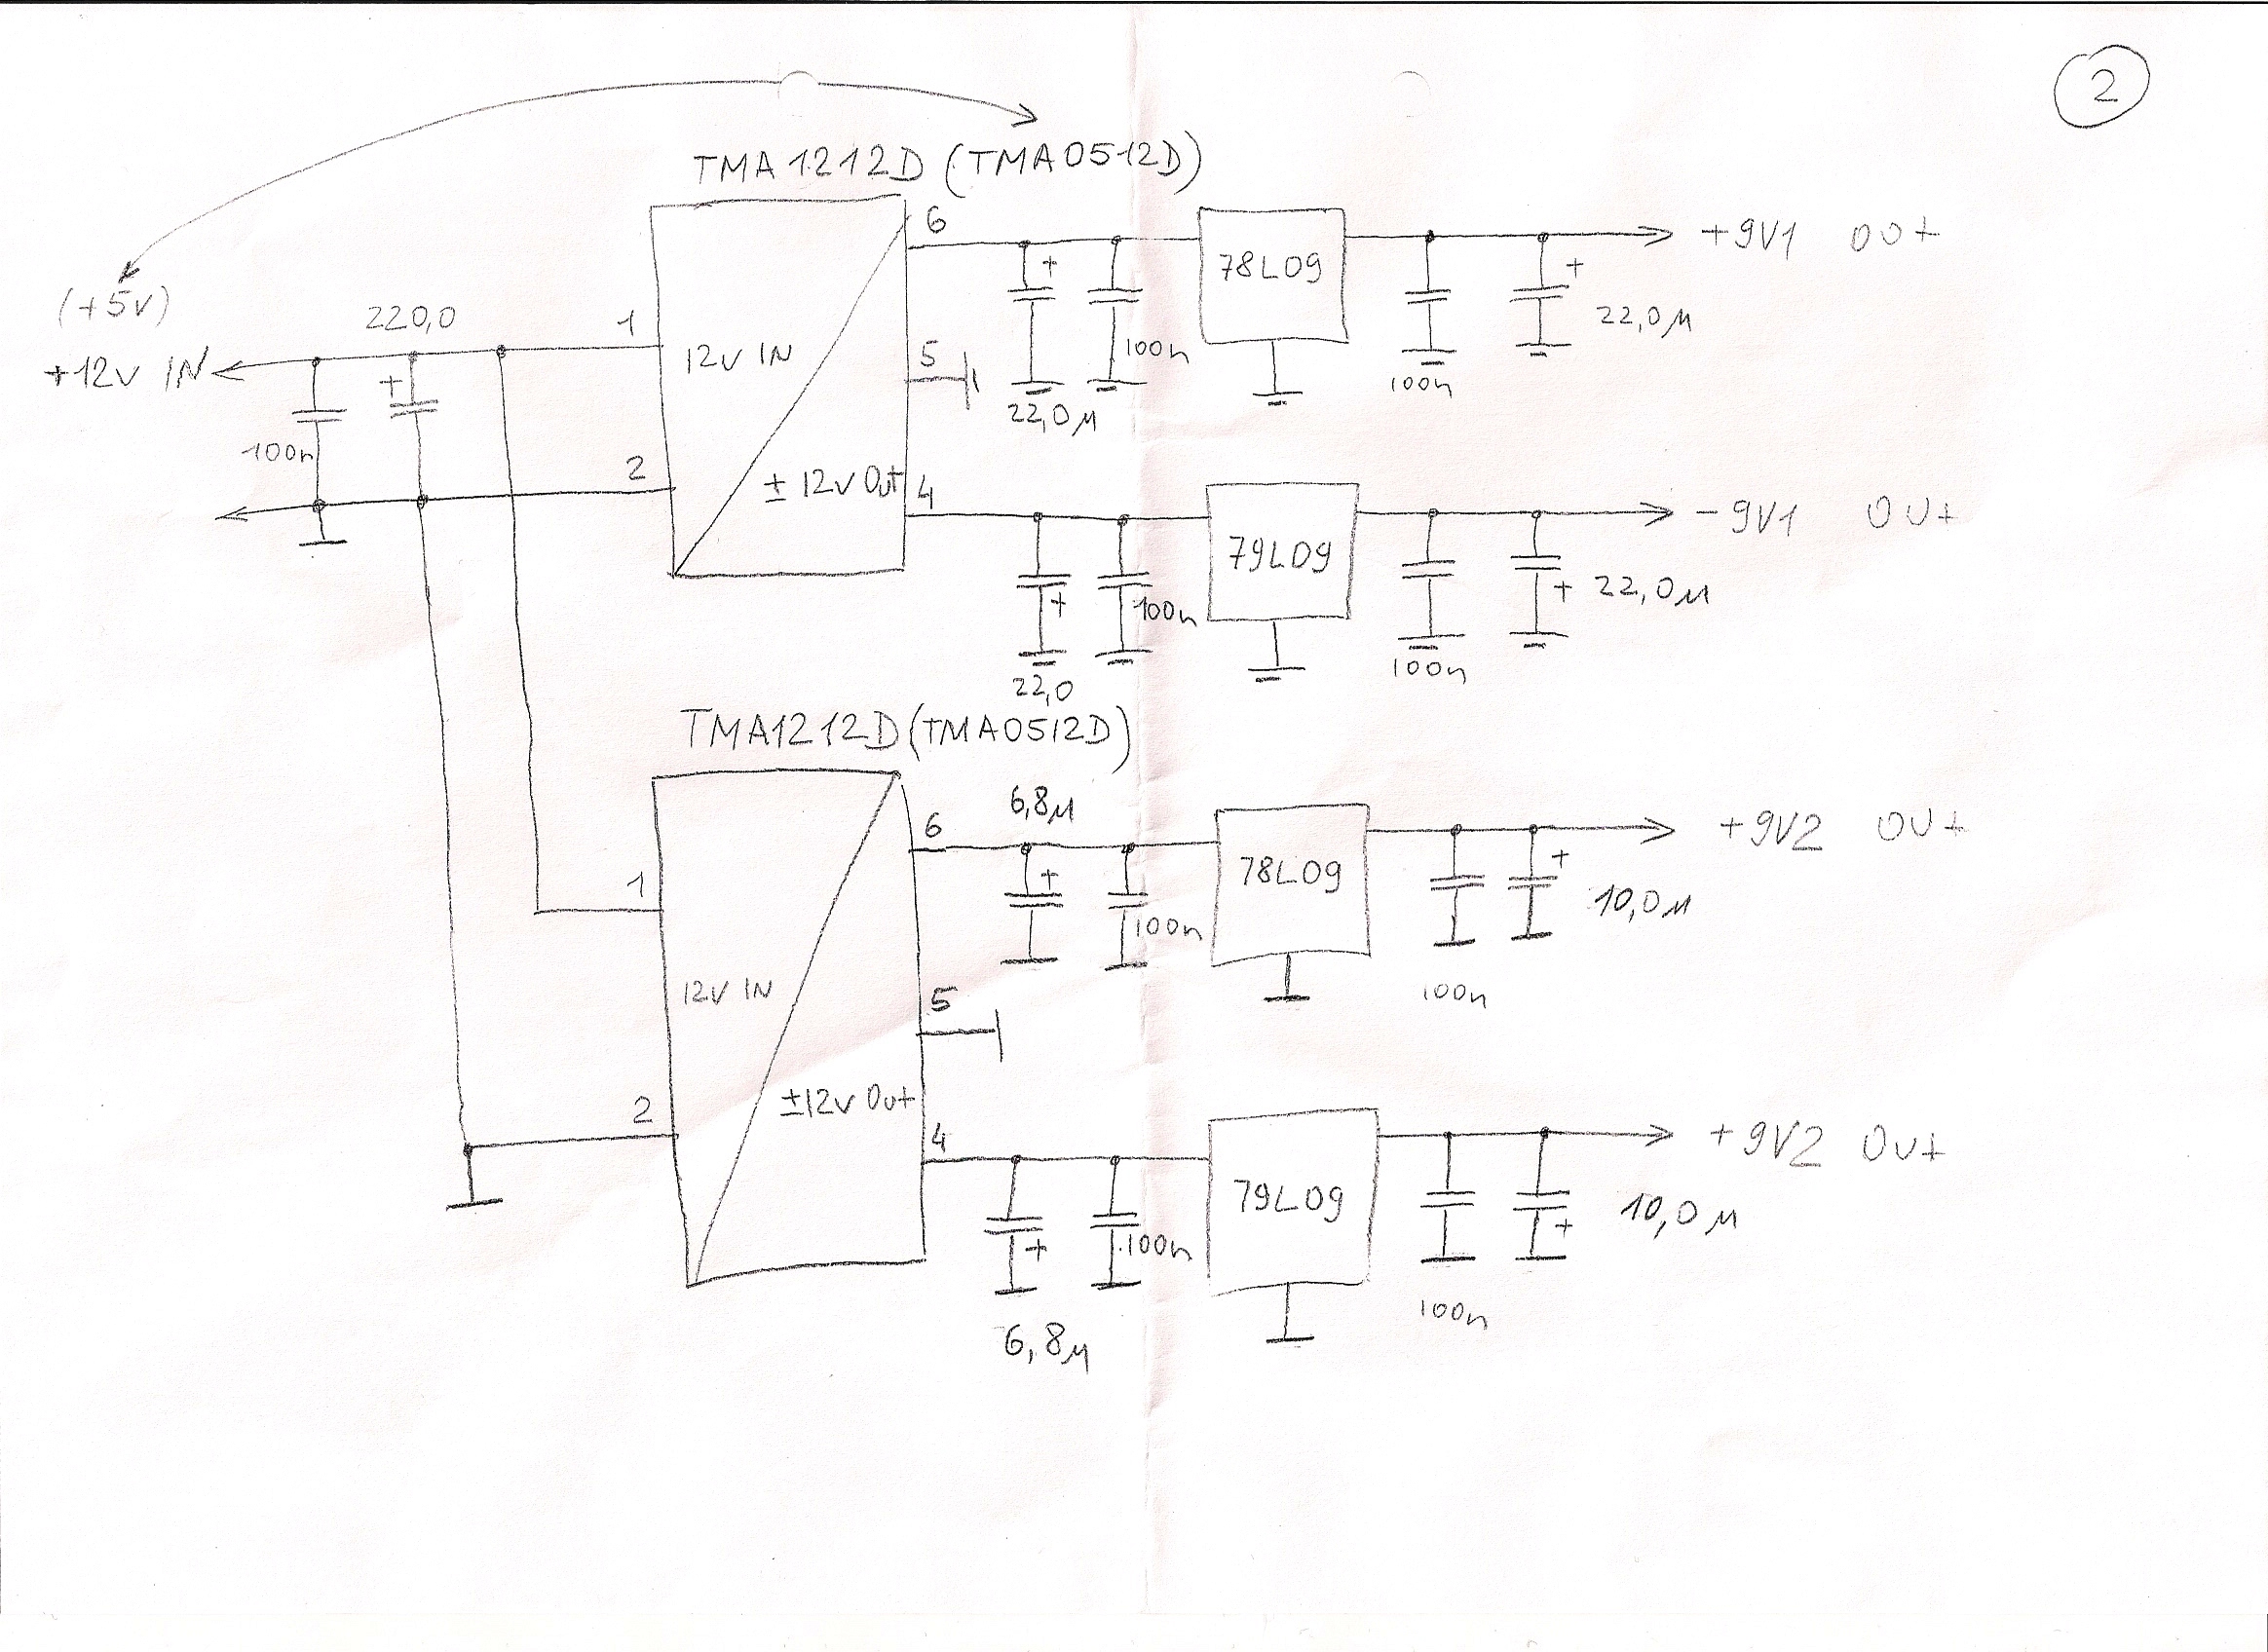 2
TMA1212D (TMA0512D)
(+5V)
+12V IN
220,0
+
100n
1
2
12V IN
± 12V Out
6
5
4
+
22,0µ
100n
78L09
100n
+
22,0µ
+9V1 OUt
+
22,0
100n
79L09
100n
+ 22,0µ
-9V1 OUt
TMA1212D (TMA0512D)
1
2
12V IN
±12V Out
6
5
4
6,8µ
+
100n
78L09
100n
+
10,0µ
+9V2 OUt
+
6,8µ
100n
79L09
100n
+
10,0µ
+9V2 OUt